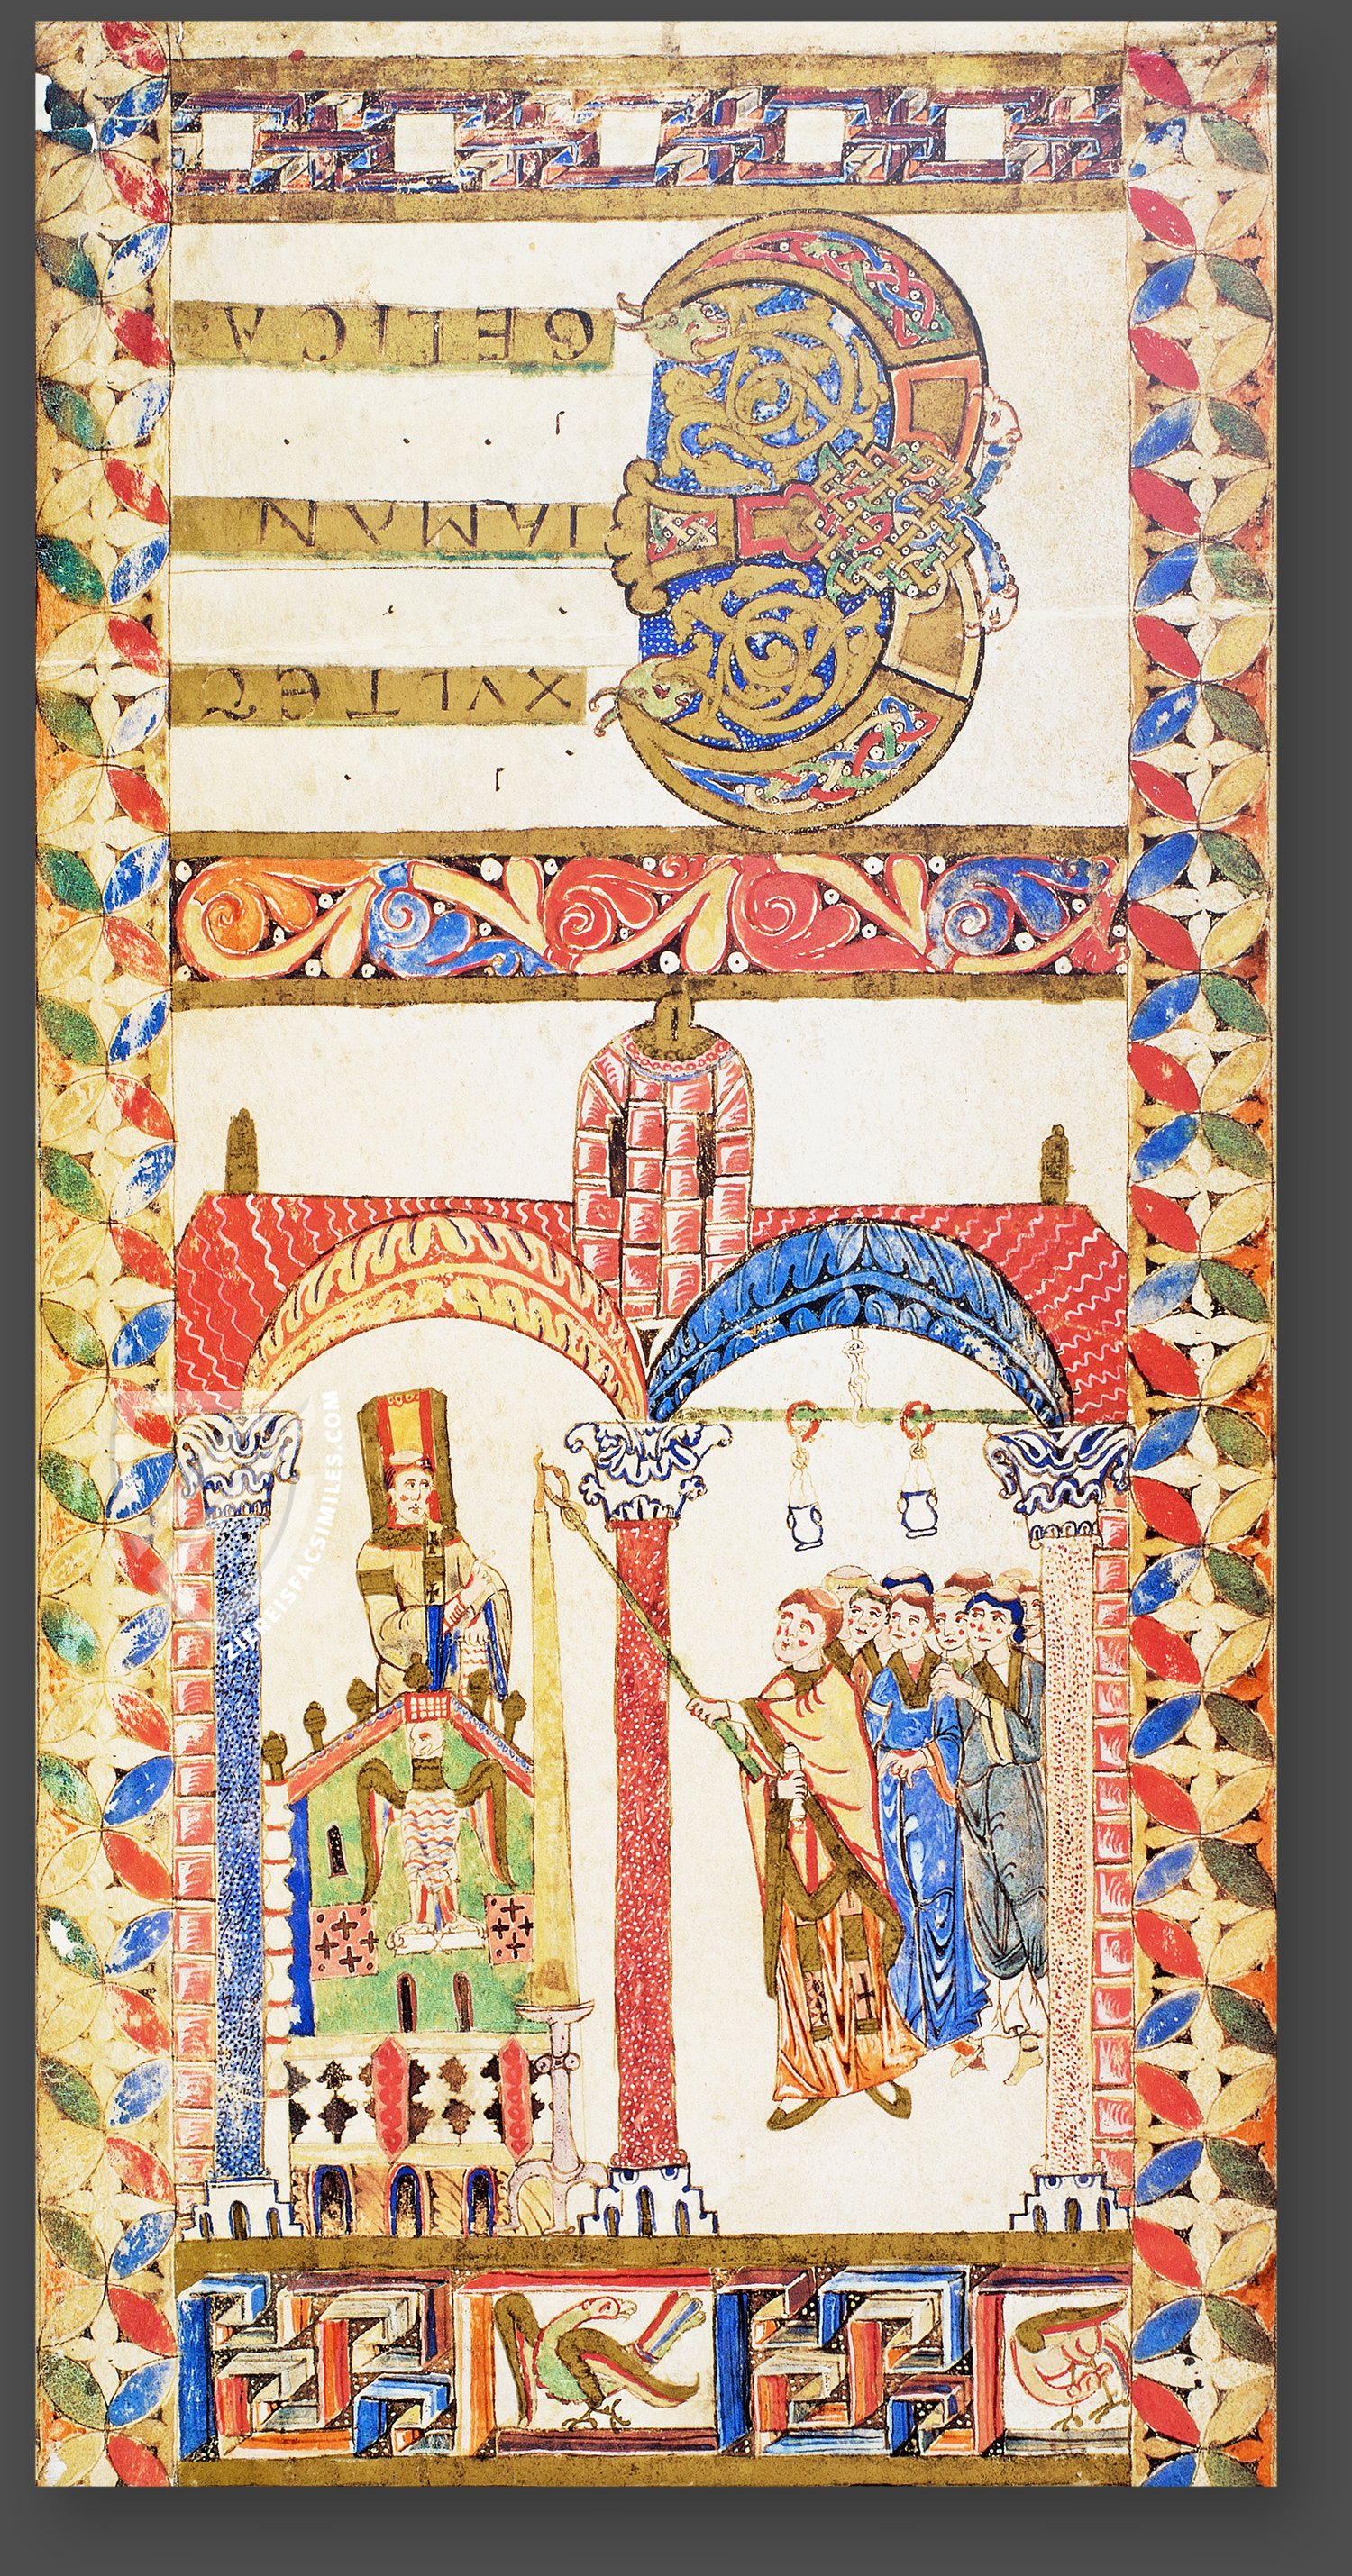 EXVLTET
IAMAN
GELICA
ZIEREISFACSIMILES.COM